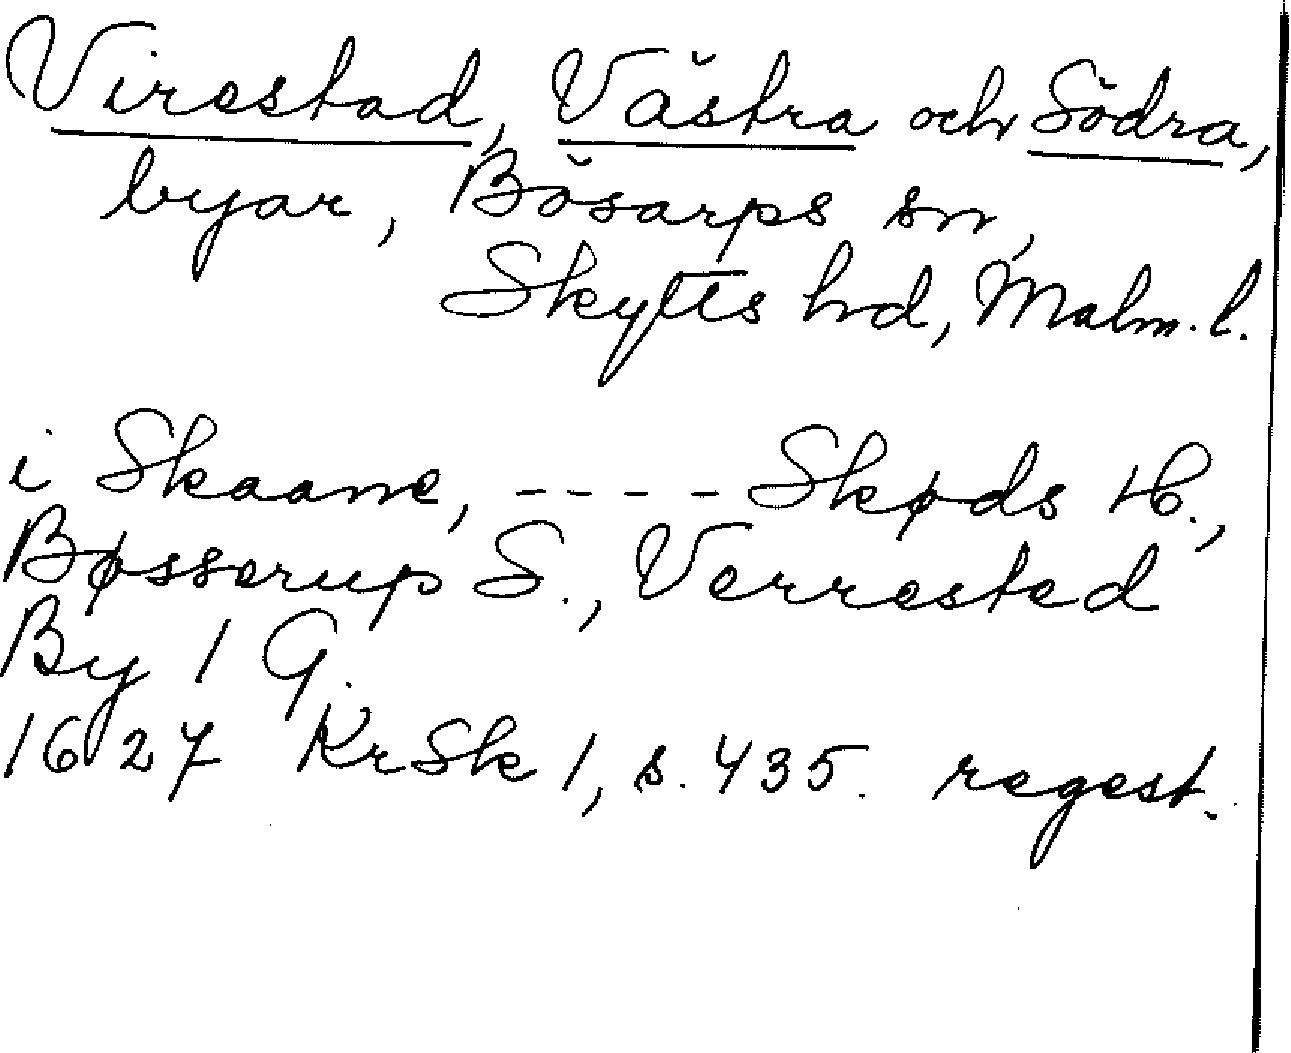 Virestad, Västra och Södra,
byar, Bösarps sn,
Skytts hd, Malm. l.
i Skaane, ---- Skøds H.,
Bøsserup S., Verrested
By 1 G.
1627 KrSk 1, s. 435. regest.